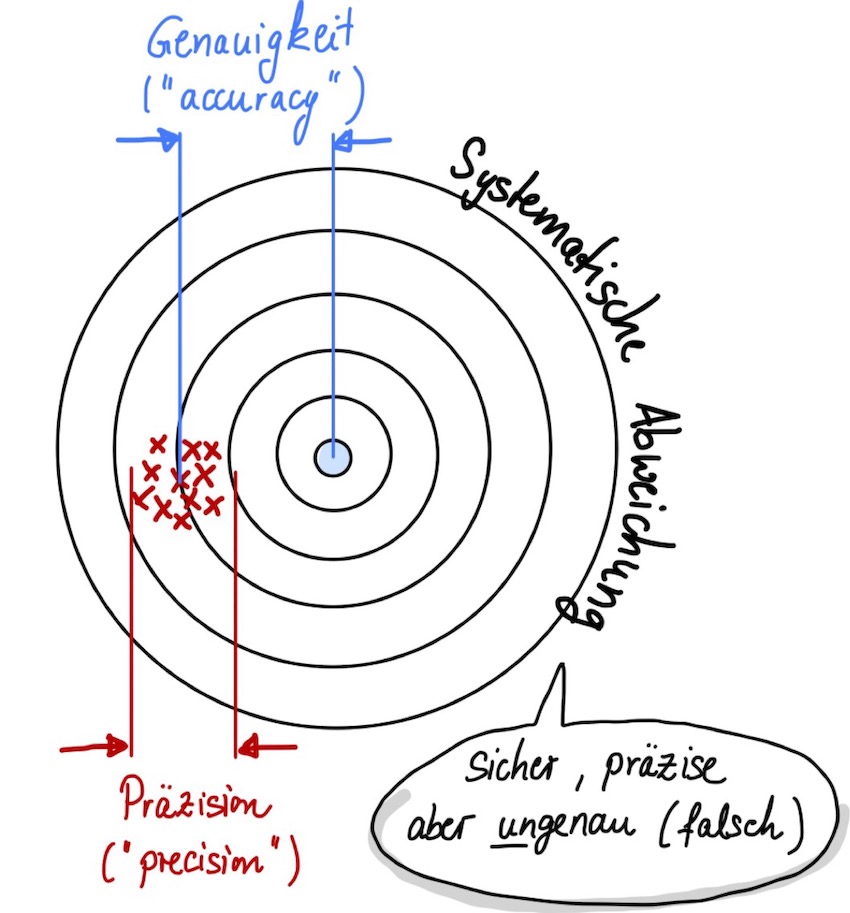 Genauigkeit
("accuracy")
Systematische Abweichung
Präzision
("precision")
Sicher, präzise
aber ungenau (falsch)